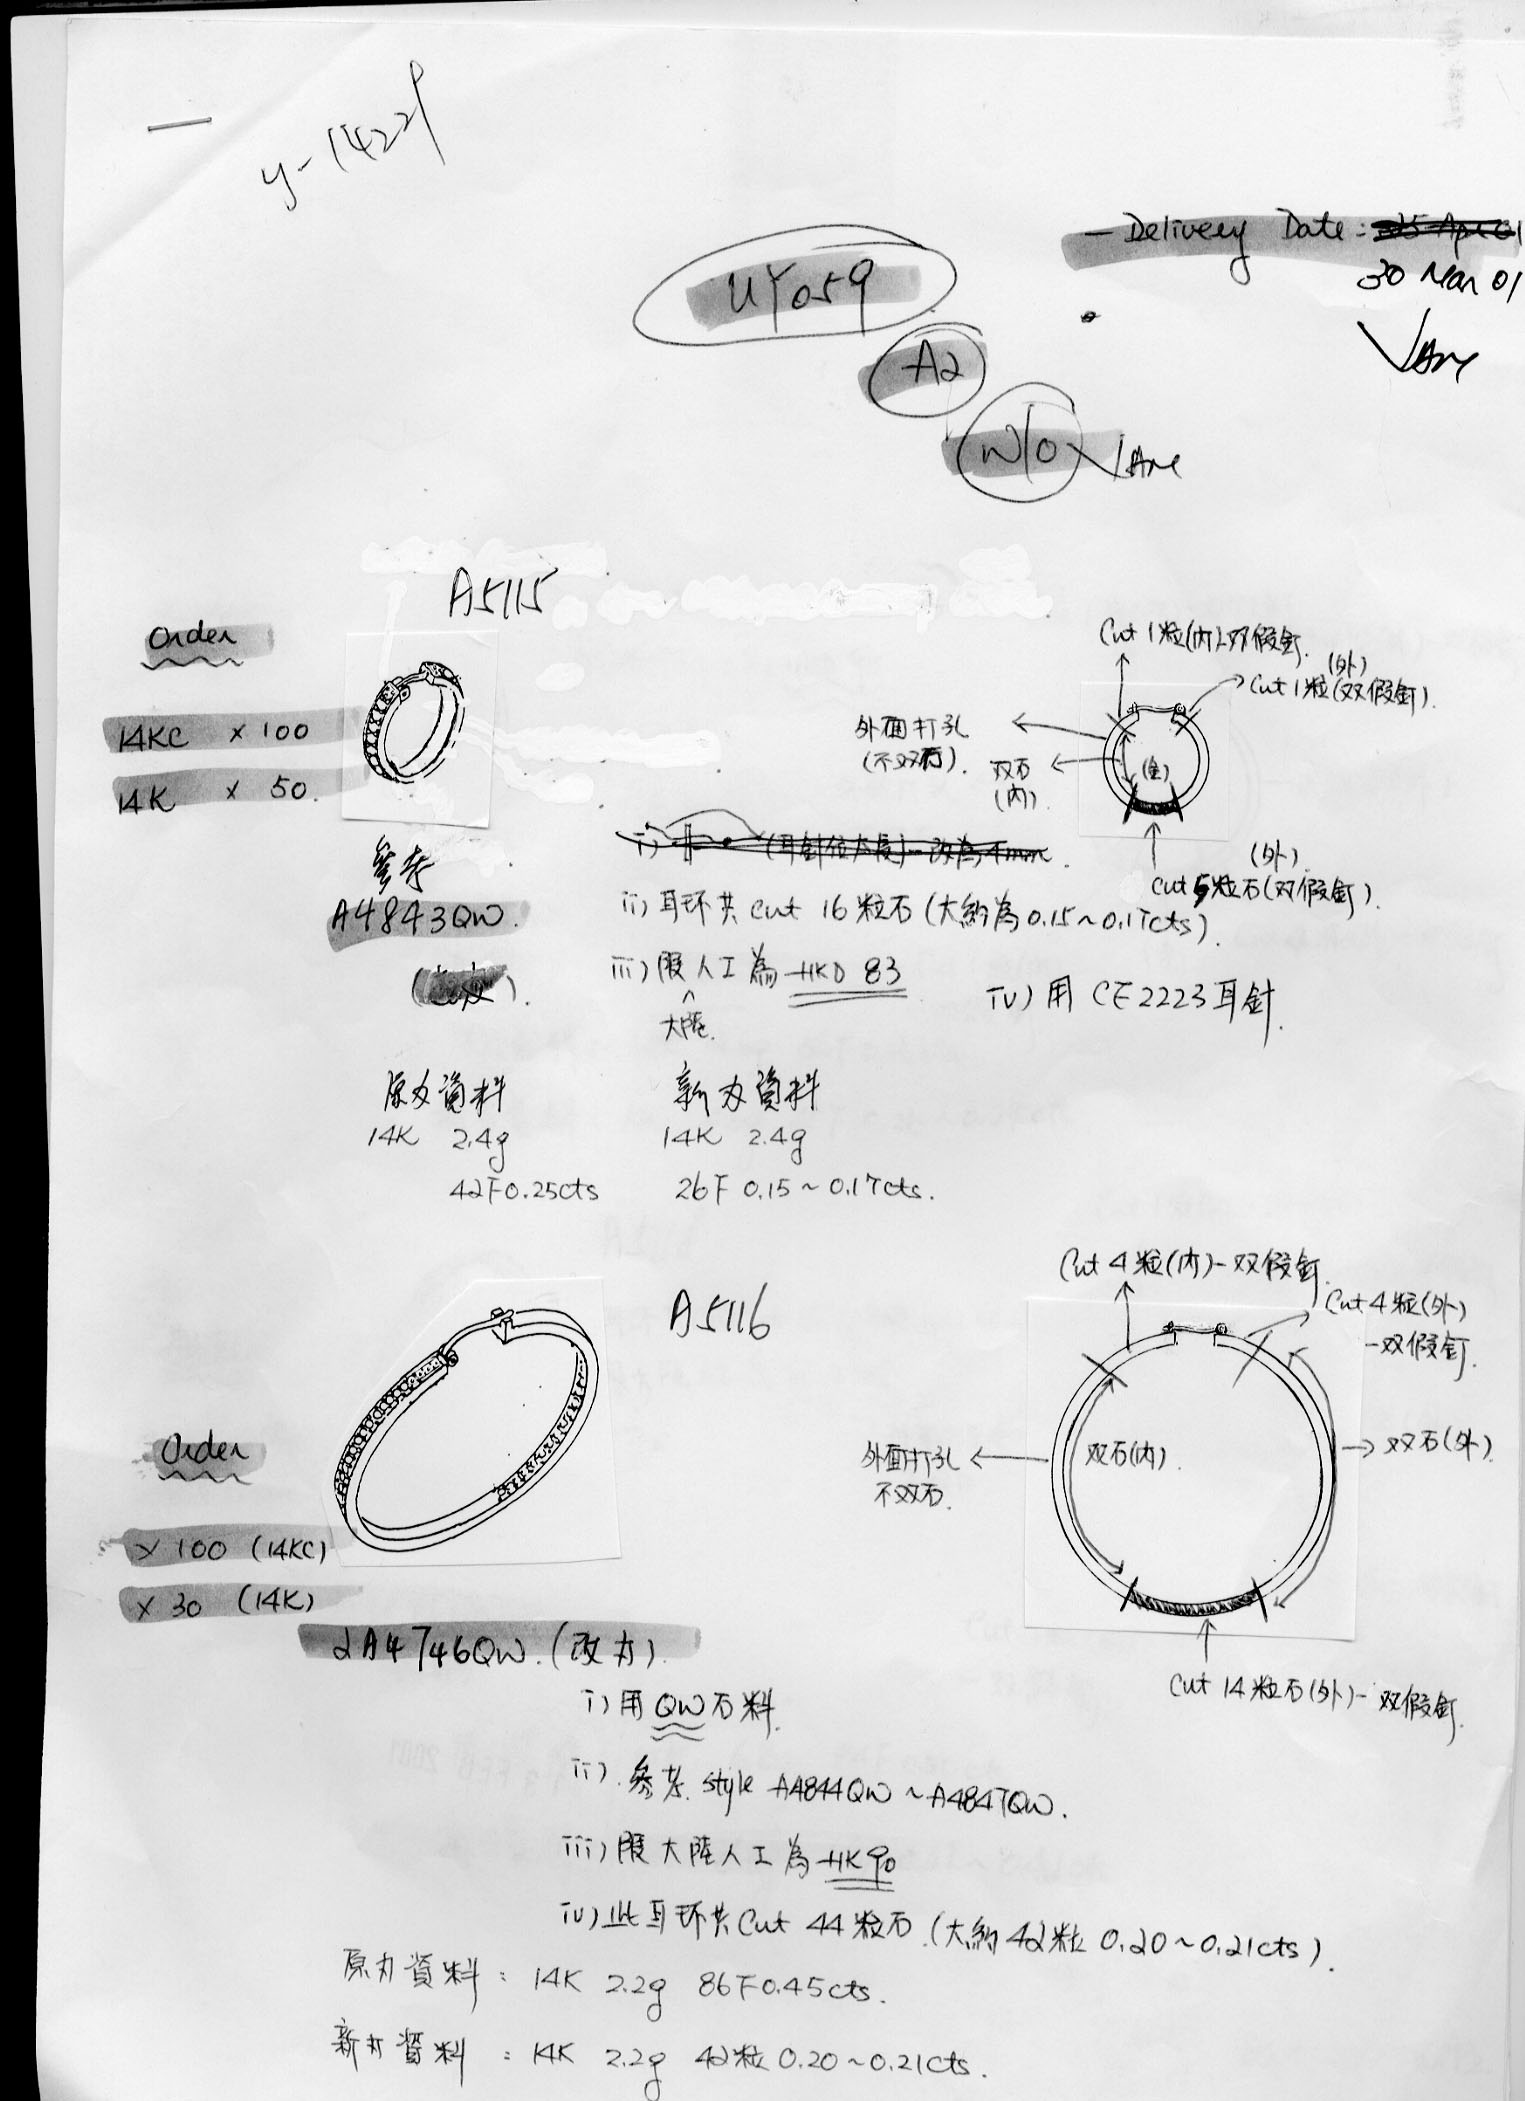 y-1422P
- Delivery Date:
30 Mar 01
UY059
A2
W/O
A5115
Order
14KC x 100
14K x 50.
Cut 1粒(内)双假釘.
(外)
Cut 1粒(双假釘).
外面打孔
(不双石).
双石
(内)
(全)
(外).
Cut 5粒石(双假釘).
參考
A4843QW.
ii) 耳环共 Cut 16 粒石 (大約為 0.15~0.17cts).
iii) 限人工為 HKD 83
大陸.
iv) 用 CE2223 耳針.
原办資料
14K 2.4g
42F0.25cts
新办資料
14K 2.4g
26F 0.15~0.17cts.
A5116
Order
x 100 (14KC)
x 30 (14K)
Cut 4 粒(内)-双假釘.
Cut 4 粒(外)
-双假釘.
外面打孔
不双石.
双石(内).
双石(外).
Cut 14 粒石(外)-双假釘.
2A4746QW.(改办).
i) 用 QW 石料.
ii). 參考. style A4844QW ~ A4847QW.
iii) 限大陸人工為 HK90
iv) 此耳环共 Cut 44 粒石.(大約 42粒 0.20~0.21cts).
原办資料: 14K 2.2g 86F0.45cts.
新办資料: 14K 2.2g 42粒 0.20~0.21cts.